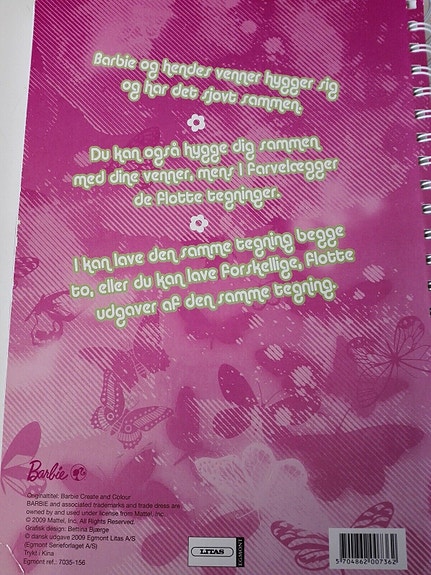 Barbie og hendes venner hygger sig
og har det sjovt sammen.
Du kan også hygge dig sammen
med dine venner, mens I farvelægger
de flotte tegninger.
I kan lave den samme tegning begge
to, eller du kan lave forskellige, flotte
udgaver af den samme tegning.
Barbie
Originaltitel: Barbie Create and Colour
BARBIE and associated trademarks and trade dress are
owned by and used under license from Mattel, Inc.
© 2009 Mattel, Inc. All Rights Reserved.
Grafisk design: Bettina Bjerge
© dansk udgave 2009 Egmont Litas A/S
(Egmont Serieforlaget A/S)
Trykt i Kina
Egmont ref.: 7035-156
LITAS
EGMONT
5 704862 007362